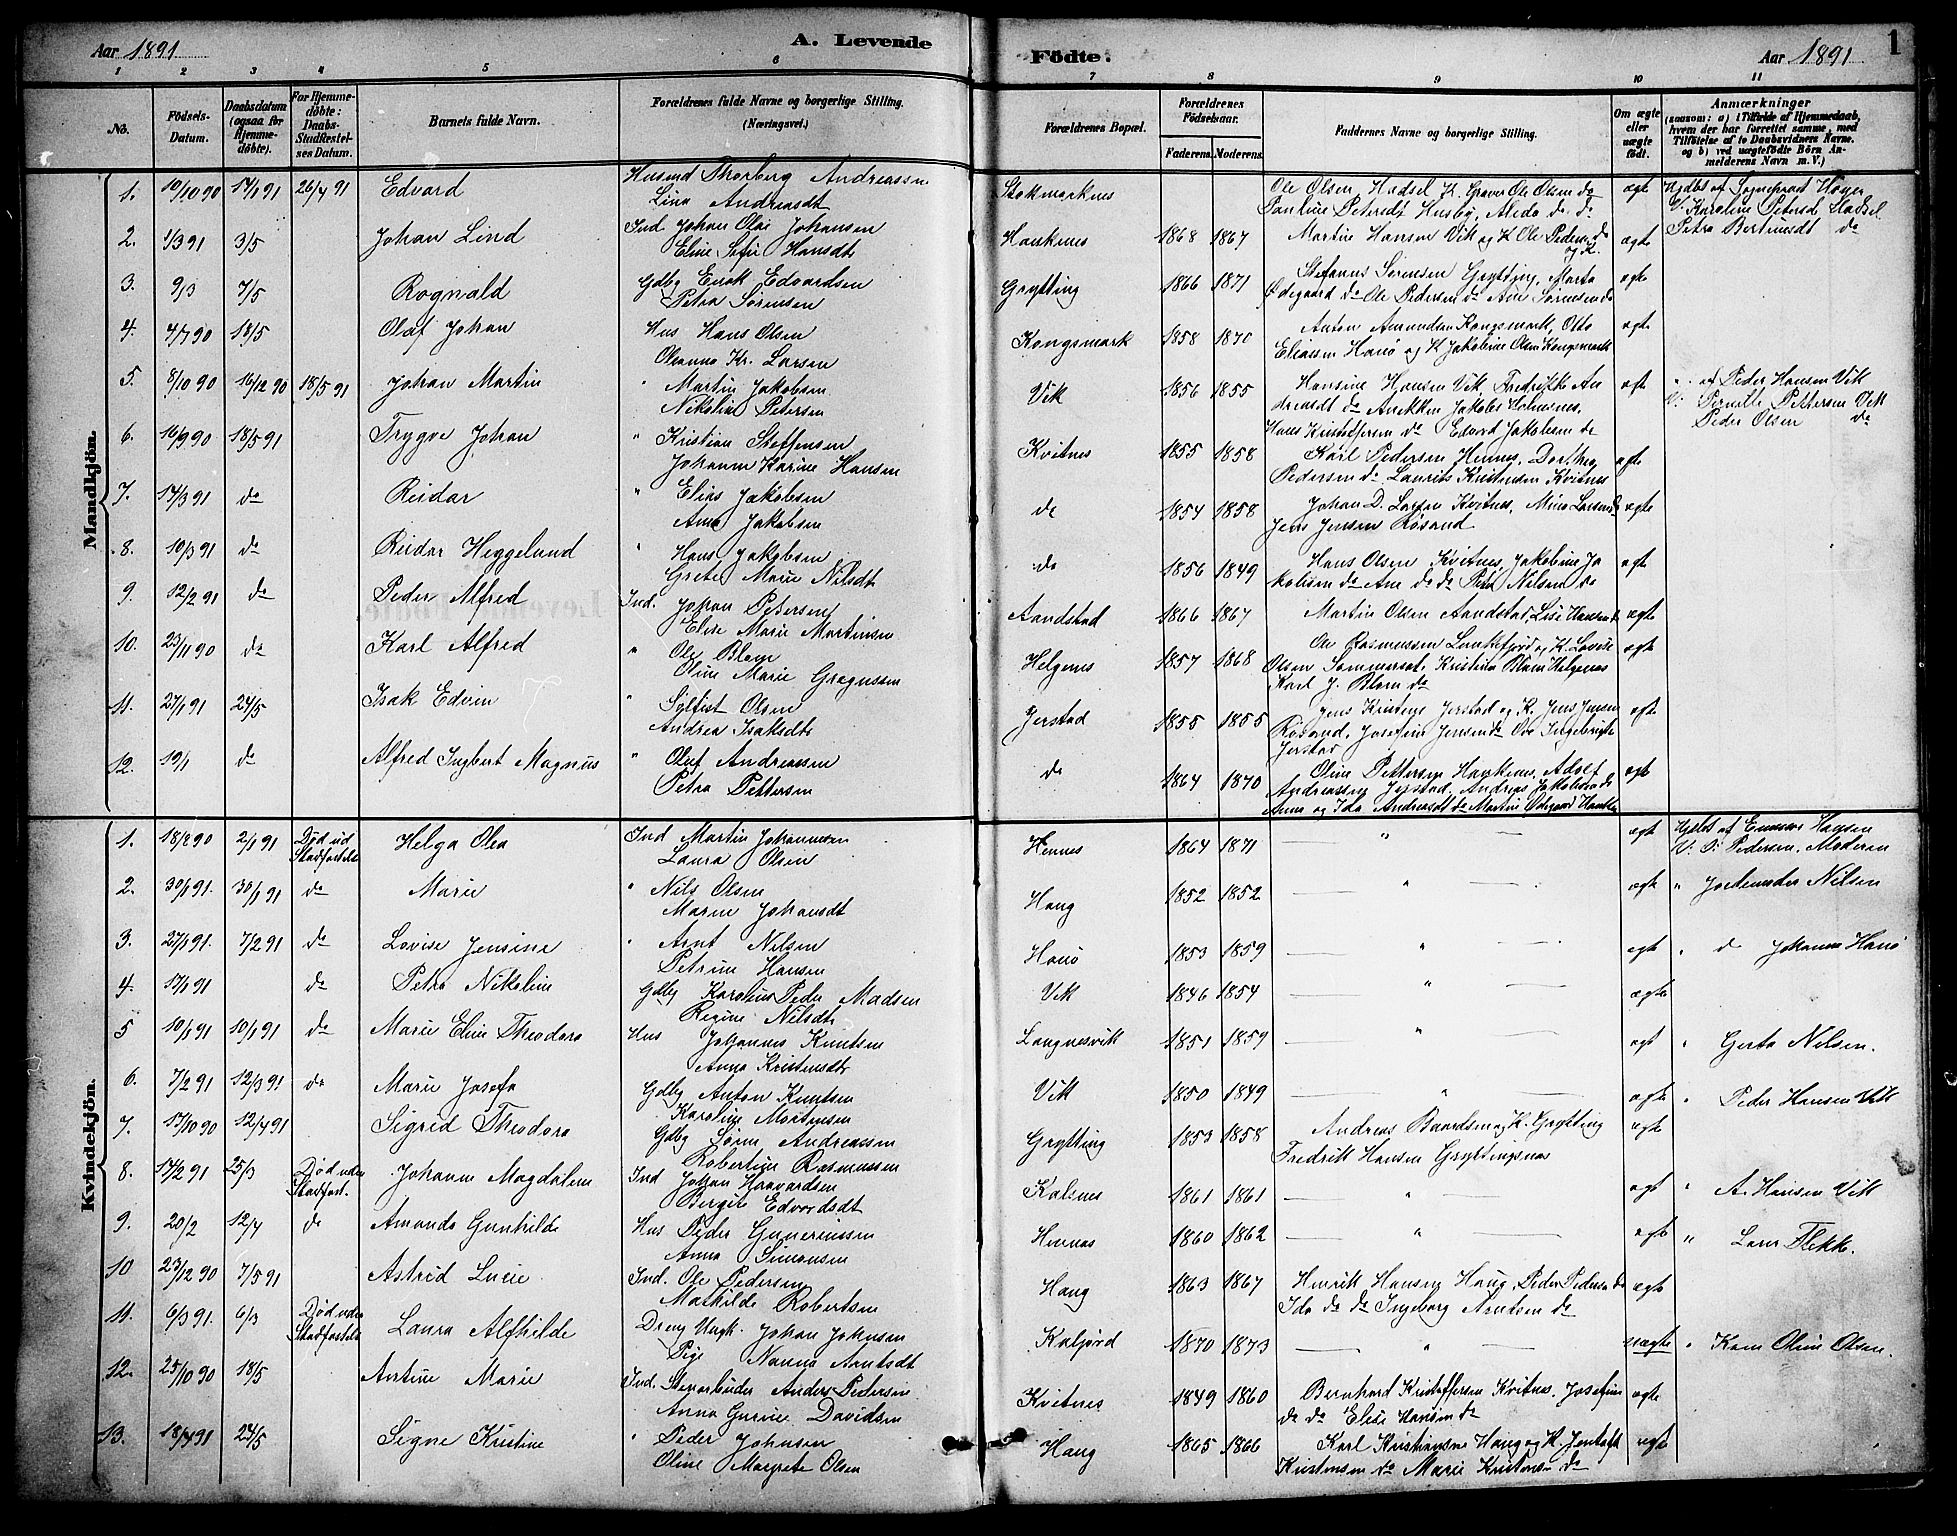 Aar 1891 A. Levende
Födte. Aar 1891 1
1 2 3 4 5 6 7 8 9 10 11
No. Födsels-Datum. Daabsdatum (ogsaa for Hjemmedöbte). For Hjemmedöbte: Daabs-Stadfæstelses Datum. Barnets fulde Navn. Forældrenes fulde Navne og borgerlige Stilling. (Næringsvei.)
Forældrenes Bopæl. Forældrenes Födselsaar. Faderens. Moderens. Faddernes Navne og borgerlige Stilling. Om ægte eller uægte födt. Anmærkninger (saasom: a) i Tilfælde af Hjemmedaab, hvem der har forrettet samme, med Tilföielse af to Daabsvidners Navne. og b) ved uægtefödte Börn Anmelderens Navn m. V.)
Mandkjön.
1. 10/10 90 17/1 91 26/4 91 Edvard Husmd Thorberg Andreassen
Lina Andreasdt
Stokmarknes Ole Olsen, Hadsel K. Ole Olsen do
Husby, do. do ægte Hjdbt af Sognepræst
V. Karoline Hadsel
Petra Berteusdt do
2. 1/3 91 3/5 Johan Lind Ind Johan Olai Johansen
Eline Hansdt
Haukenes 1868 1867 Martin Hansen Vik og K Ole Pedersen do
og K. ægte
3. 9/3 7/5 Rognald Gdbg Enok Edvardsen
Petra Sörensen
Grytting 1866 1871 Stefanus Sörensen Grytting, Marta
Ödegaard do Ole Pedersen do Ane Sörensen do ægte
4. 4/7 90 18/5 Olaf Johan Hus Hans Olsen
Oleanna Kr. Larsen
Kongsmark 1858 1870 Anton Amundsen Kongsmark, Otto
Eliassen Hanö og K Jakobine Olsen Kongsmark ægte
5. 8/10 90 16/12 90 18/5 91 Johan Martin " Martin Jakobsen
Nikoline Petersen
Vik 1856 1855 Hansine Hansen Vik Fredrikke An
dreasdt do Jakobs Holmsnes,
Hans Kristoffersen do Edvard Jakobsen do ægte " af Peder Hansen Vik
V: Pernille Pettersen Vik
Peder Olsen do
6. 16/9 90 18/5 91 Trygve Johan " Kristian Steffensen
Johanna Karine Hansen
Kvitnes 1855 1858 Karl Pedersen Hennes,
Pedersen do Laurits Kristensen Kvitnes ægte
7. 14/3 91 do Reidar " Elias Jakobsen
Anna Jakobsen
do 1854 1858 Johan D. Larsen Kvitnes, Mina Larsen do
Jens Jensen Rösand ægte
8. 10/3 91 do Reidar Heggelund " Hans Jakobsen
Grete Marie Nilsdt
do 1856 1849 Hans Olsen Kvitnes, Jakobine Ja
kobsen do Ane do do Nilsen do ægte
9. 12/2 91 do Peder Alfred Ind. Johan Petersen
Elise Marie Martinsen
Aandstad 1866 1867 Martin Olsen Aandstad, Lise Hansen do ægte
10. 23/11 90 do Karl Alfred " Ole Blom
Oline Marie Gregussen
Helgenes 1857 1868 Ole Rasmussen og K. Lovise
Olsen Sommerset, Kristine Blom Helgenes
Karl J. Blom do ægte
11. 27/1 91 24/5 Isak Edvin " Olsen
Andrea Isaksdt
Jerstad 1855 1855 Jens Kristens Jerstad og K. Jens Jensen
Rösand, Josefine Jensen do Ove Ingebrigts
Jerstad ægte
12. 19/1 do Alfred Ingbert Magnus " Oluf Andreassen
Petra Pettersen
do 1864 1870 Oline Pettersen Haukenes, Adolf
Andreassen Jerstad, Andreas Jakobsen do
Anna og Ida Andreasdt do Martin Ödegaard ægte
Kvindekjön.
1. 18/8 90 2/1 91 Död ud Stadfæstelse Helga Olea Ind Martin Johannesen
Laura Olsen
Hennes 1864 1871 " ægte Hjdbt af Hansen
V: O: Pedersen, Moderen
2. 30/1 91. 30/1 91 do Marie " Nils Olsen
Maren Johansdt
Haug 1852 1852 " ægte " Jordemoder Nilsen
3. 27/1 91. 7/2 91 do Lovise Jensine " Arnt Nilsen
Petrine Hansen
Hanö 1853 1859 " ægte " d Johanna Hanö
4. 17/1 91 do Petra Nikoline Gdbg Karolius Peder Madsen
Regine Nilsdt
Vik 1846 1854 " ægte
5 10/1 91 10/1 91 do Marie Eline Theodora Hus Johannes Knutsen
Anna Kristensdt
Langnesvik 1851 1859 " ægt " Gerta Nilsen.
6. 7/2 91 12/3 91 do Marie Josefa Gdbg Anton Knutsen
Karoline Mortensen
Vik 1850 1849 " ægte " Peder Hansen Vik
7. 13/10 90 12/4 91 Sigrid Theodora Gdbg Sören Andreassen
Robertine Rasmussen
Grytting 1853 1858 Andreas Baardsen og K. Grytting
Fredrik Hansen Gryttingsnes ægte
8. 14/2 91 25/3 Död uden Stadfæst. Johanna Magdalena Ind Johan Haavardsen
Bergite Edvardsdt
Kalsnes 1861 1861 " ægt " A. Hansen Vik
9. 20/2 12/4 do Amanda Gunhilde Hus Peder Guneriussen
Anna Simonsen
Hennes 1860 1862 " ægte " Lars Flekke.
10 23/12 90 7/5 91 Astrid Lucie Ind. Ole Pedersen
Mathilde Robertsen
Haug 1863 1867 Henrik Hansen Haug, Peder Pedersen do
Ida do do Ingeborg Arntsen do ægte
11. 6/3 91. 6/3 Död uden Stadfæstelse Laura Alfhilde Dreng Ungk. Johan Johnsen
Pige Nanna Arntsdt
Kaljord 1870 1873 " uægte " Karn Oline Olsen.
12. 25/10 90 18/5 Antine Marie Ind. Stenarbeider Anders Pedersen
Anna Gurine Davidsen
Kvitnes 1849 1860 Bernhard Kristoffersen Kvitnes, Josefine
do do Elise Hansen do ægte
13. 18/4 91 24/5 Signe Kristine " Peder Johnsen
Oline Margrete Olsen
Haug 1865 1866 Karl Kristiansen Haug og K. Jentoft
Kristensen do Marie Kristensen do ægte